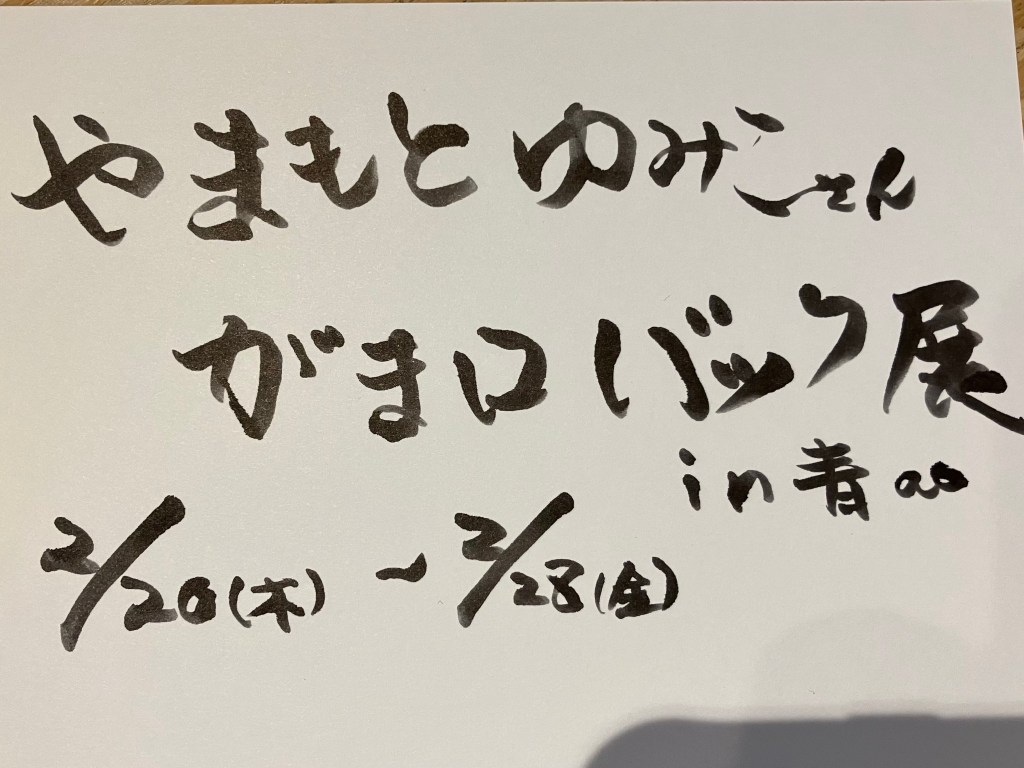 やまもとゆみこさん
がま口バック展
in 青 ao
2/20(木) ~ 2/28(金)